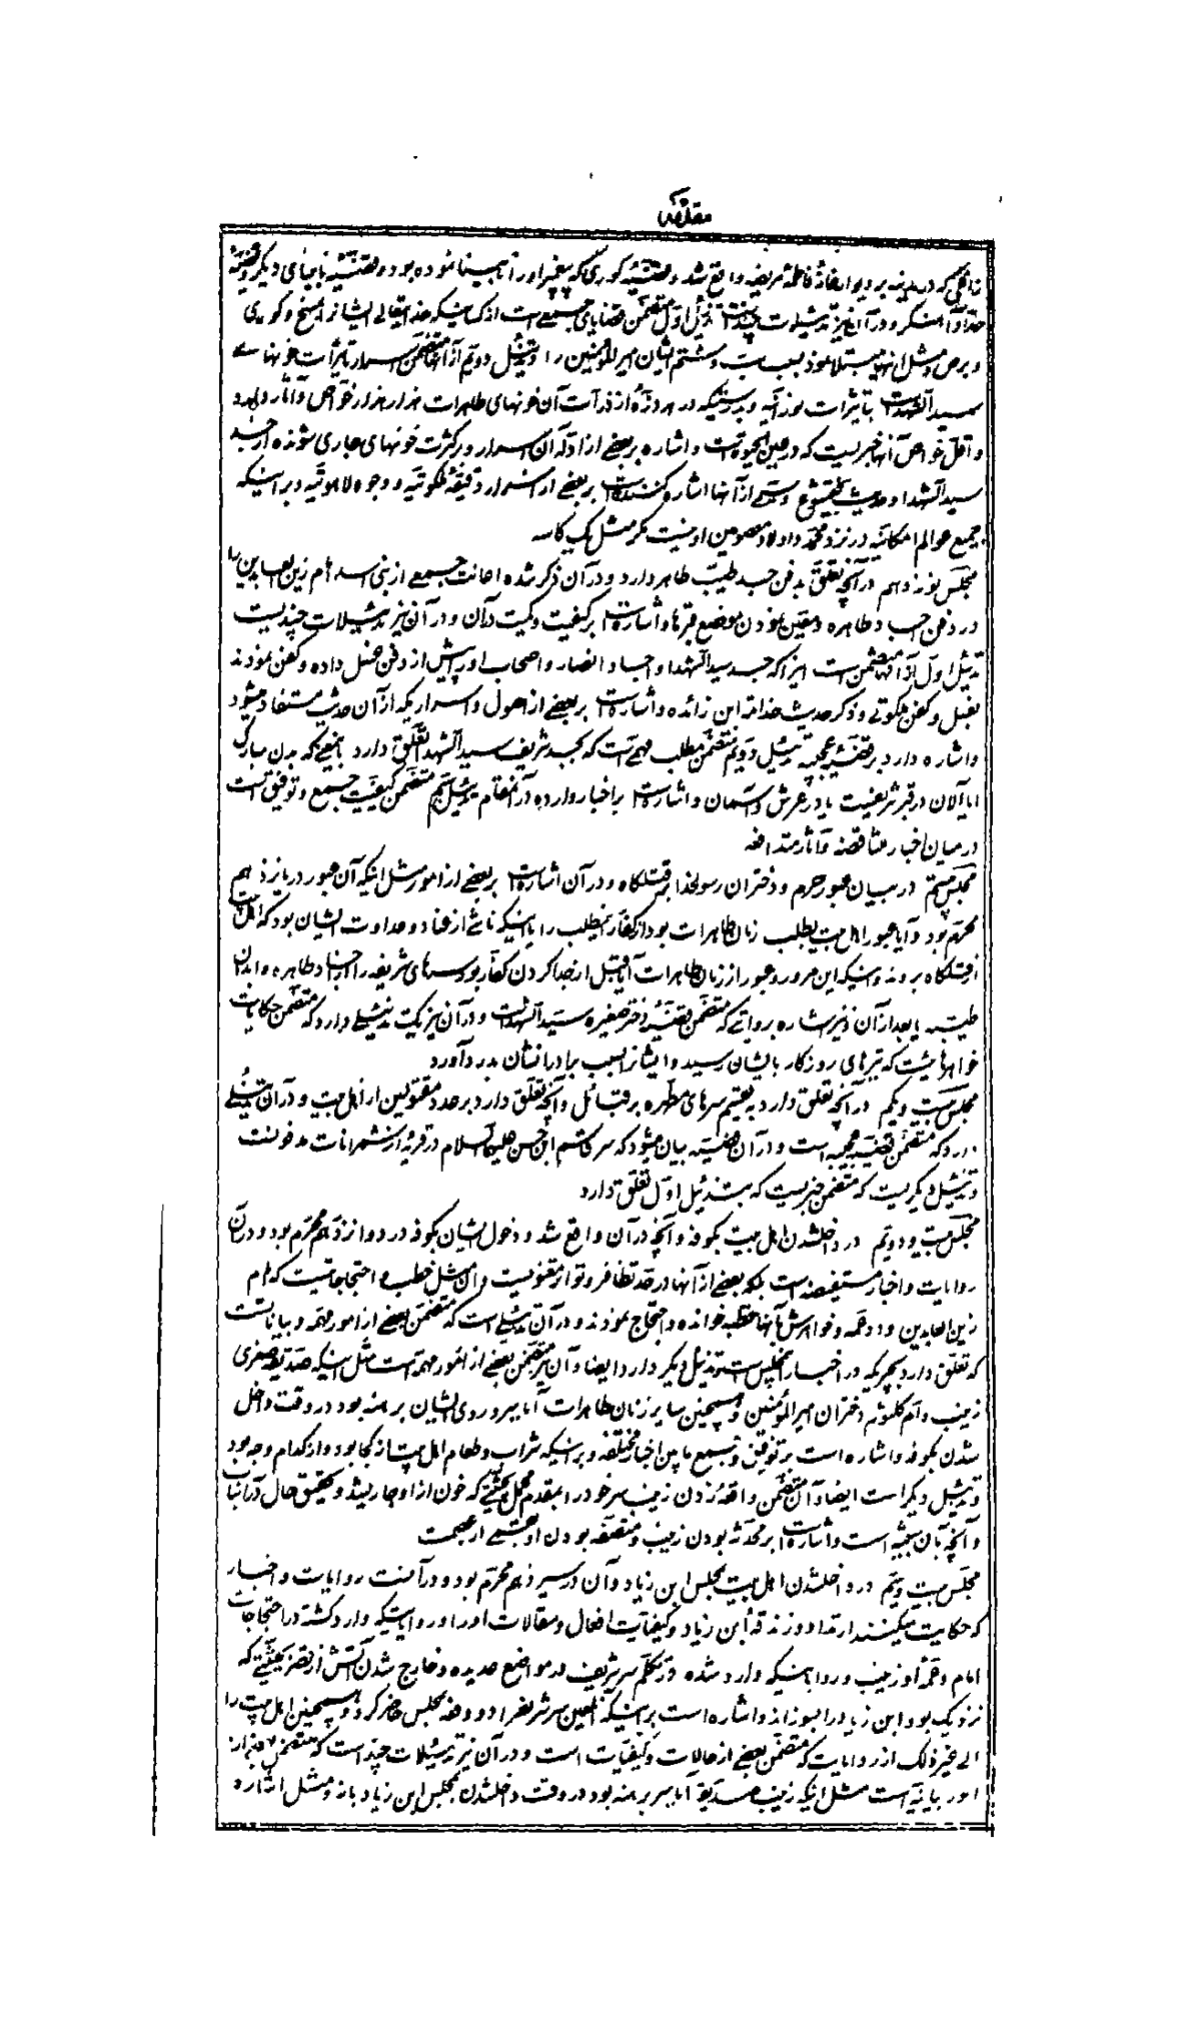 مقدمه
که در مدینه بر دیوار خانهٔ فاطمه مریضه واقع شد و قضیّه کوری که پیغمبر او را بینا نموده بود و قضیّه نابینای دیگر و قضیّه
و در آن نیز تذییلات چند است تذییل اوّل متضمّن قضایای جمعی است از کسانیکه خداوند تعالی ایشانرا بمسخ و کوری
و برص و مثل اینها مبتلا نمود بسبب سبّ و شتم ایشان امیر المؤمنین را و تذییل دویّم از آنها متضمّن اسرار تأثیرات خونهای
سید الشهداء است بتأثیرات نورانیّه و بدرستیکه در هر ذرّه از ذرّات آن خونهای طاهرات هزار هزار خواصّ و آثار دارد
و اقلّ خواصّ آنها خبریست که در عین الحیوة است و اشاره بر بعضی از ادلّه آن اسرار و بر کثرت خونهای جاری شونده از جسد
سید الشهدا و حدیث بختیشوع و از آنها اشاره کننده است بر بعضی از اسرار دقیقهٔ ملکوتیّه و وجوه لاهوتیّه و بر اینکه
جمیع عوالم امکانیّه در نزد محمّد و اولاد معصومین او نیست مگر مثل یک کاسه
مجلس نوزدهم در آنچه تعلّق بدفن جسد طیّب طاهر دارد و در آن ذکر شده اعانت جمعی از بنی اسد امام زین العابدین را
در دفن اجساد طاهره و معیّن نمودن موضع قبرها و اشاره است بر کیفیت و کمیت در آن و در آن نیز تذییلات چندیست
تذییل اوّل از آنها متضمّن است اینرا که جسد سید الشهدا و اجساد انصار و اصحاب او را پیش از دفن غسل داده و کفن نمودند
بغسل و کفن ملکوتی و ذکر حدیث ابن زائده و اشاره است بر بعضی از اصول و اسراریکه از آن حدیث مستفاد میشود
و اشاره دارد بر قضیّهٔ عجیبه تذییل دویّم متضمّن مطلب مهمّی است که بجسد شریف سید الشهدا تعلّق دارد باینمعنی که بدن مبارک
او الآن در قبر شریفست یا در عرش و آسمان و اشاره است بر اخبار وارده در آنمقام تذییل سیّم متضمّن کیفیّت جمع و توفیق است
در میان اخبار متناقضه و آثار متدافعه
مجلس بیستم در بیان عبور حرم و دختران رسولخدا بر قتلگاه و در آن اشاره است بر بعضی از امور مثل اینکه آن عبور در یازدهم
محرّم بود و آیا عبور اهل بیت بطلب زنان طاهرات بود از کفّار اینمطلب را یا اینکه ناشی از عناد و عداوت ایشان بود که اهل بیت را
از قتلگاه بردند و اینکه این مرور و عبور از زنان طاهرات آیا قبل از جدا کردن کفّار بود سرهای شریفه را از اجساد طاهره و ابدان
طیّبه یا بعد از آن و نیز اشاره بروایتی که متضمّن قضیّهٔ دختر صغیره سیّد الشهداء است و در آن نیز یک تذییلی دارد که متضمّن حکایت
خواهرانیست که تیرهای روزگار بایشان رسید و ایشانرا بسبب برادرانشان بدرد آورد
مجلس بیست و یکم در آنچه تعلّق دارد به تقسیم سرهای مطهّره بر قبائل و آنچه تعلّق دارد بر عدد مقتولین از اهل بیت و در آن تذییلی
دارد که متضمّن قضیّهٔ عجیبه است و در آن قضیّه بیان میشود که سر قاسم ابن حسن علیه السلام در قریهٔ از شمرانات مدفونست
و تذییل دیگریست که متضمّن خبریست که بتذییل اوّل تعلّق دارد
مجلس بیست و دویّم در داخلشدن اهل بیت بکوفه و آنچه در آن واقع شد و دخول ایشان بکوفه در دوازدهم محرّم بود و در آن
روایات و اخبار مستفیضه است بلکه بعضی از آنها در حدّ تظافر و تواتر معنویست و آن مثل خطب و احتجاجاتیست که امام
زین العابدین و عمّه و خواهرش بآنها خطبه خوانده و احتجاج نمودند و در آن تذییلی است که متضمّن بعضی از امور مهمّه و بیاناتست
که تعلّق دارد بچیزیکه در اخبار مجلس است و تذییل دیگر دارد ایضا و آن نیز متضمّن بعضی از امور مهمّه است مثل اینکه صدّیقه صغری
زینب و امّ کلثوم دختران امیر المؤمنین و همچنین سایر زنان طاهرات آیا سر و روی ایشان برهنه بود در وقت داخل
شدن بکوفه و اشاره است بر توفیق و جمع ما بین اخبار مختلفه و بر اینکه شراب و طعام اهل بیت از کجا بود و از کدام وجه بود
و تذییل دیگر است ایضا و آن متضمّن واقعهٔ زدن زینب سر خود را بمقدم محمل بحیثیتی که خون از او جاری شد و تحقیق حال در آنباب
و آنچه بآن شبیه است و اشاره است بر محدّثه بودن زینب و متصّفه بودن او بقسمی از عصمت
مجلس بیست و سیّم در داخلشدن اهل بیت بمجلس ابن زیاد و آن در سیزدهم محرّم بود و در آنست روایات و اخبار
که حکایت میکنند ارتداد و زندقهٔ ابن زیاد و کیفیّات افعال و مقالات او را و روایاتیکه وارد گشته در احتجاجات
امام و عمّهٔ او زینب و روایاتیکه وارد شده در تکلّم سر شریف در مواضع عدیده و خارج شدن آتش از قصر بحیثیّتی که
نزدیک بود ابن زیاد را بسوزاند و اشاره است بر اینکه آنلعین سر شریفرا دو دفعه بمجلس حاضر کرد و همچنین اهل بیت را
الی غیر ذلک از روایات که متضمّن بعضی از حالات و کیفیّات است و در آن نیز تذییلات چند است که متضمّن
امور بیانیّه است مثل اینکه زینب صدّیقه آیا سر برهنه بود در وقت داخلشدن بمجلس ابن زیاد یا نه و مثل اشاره